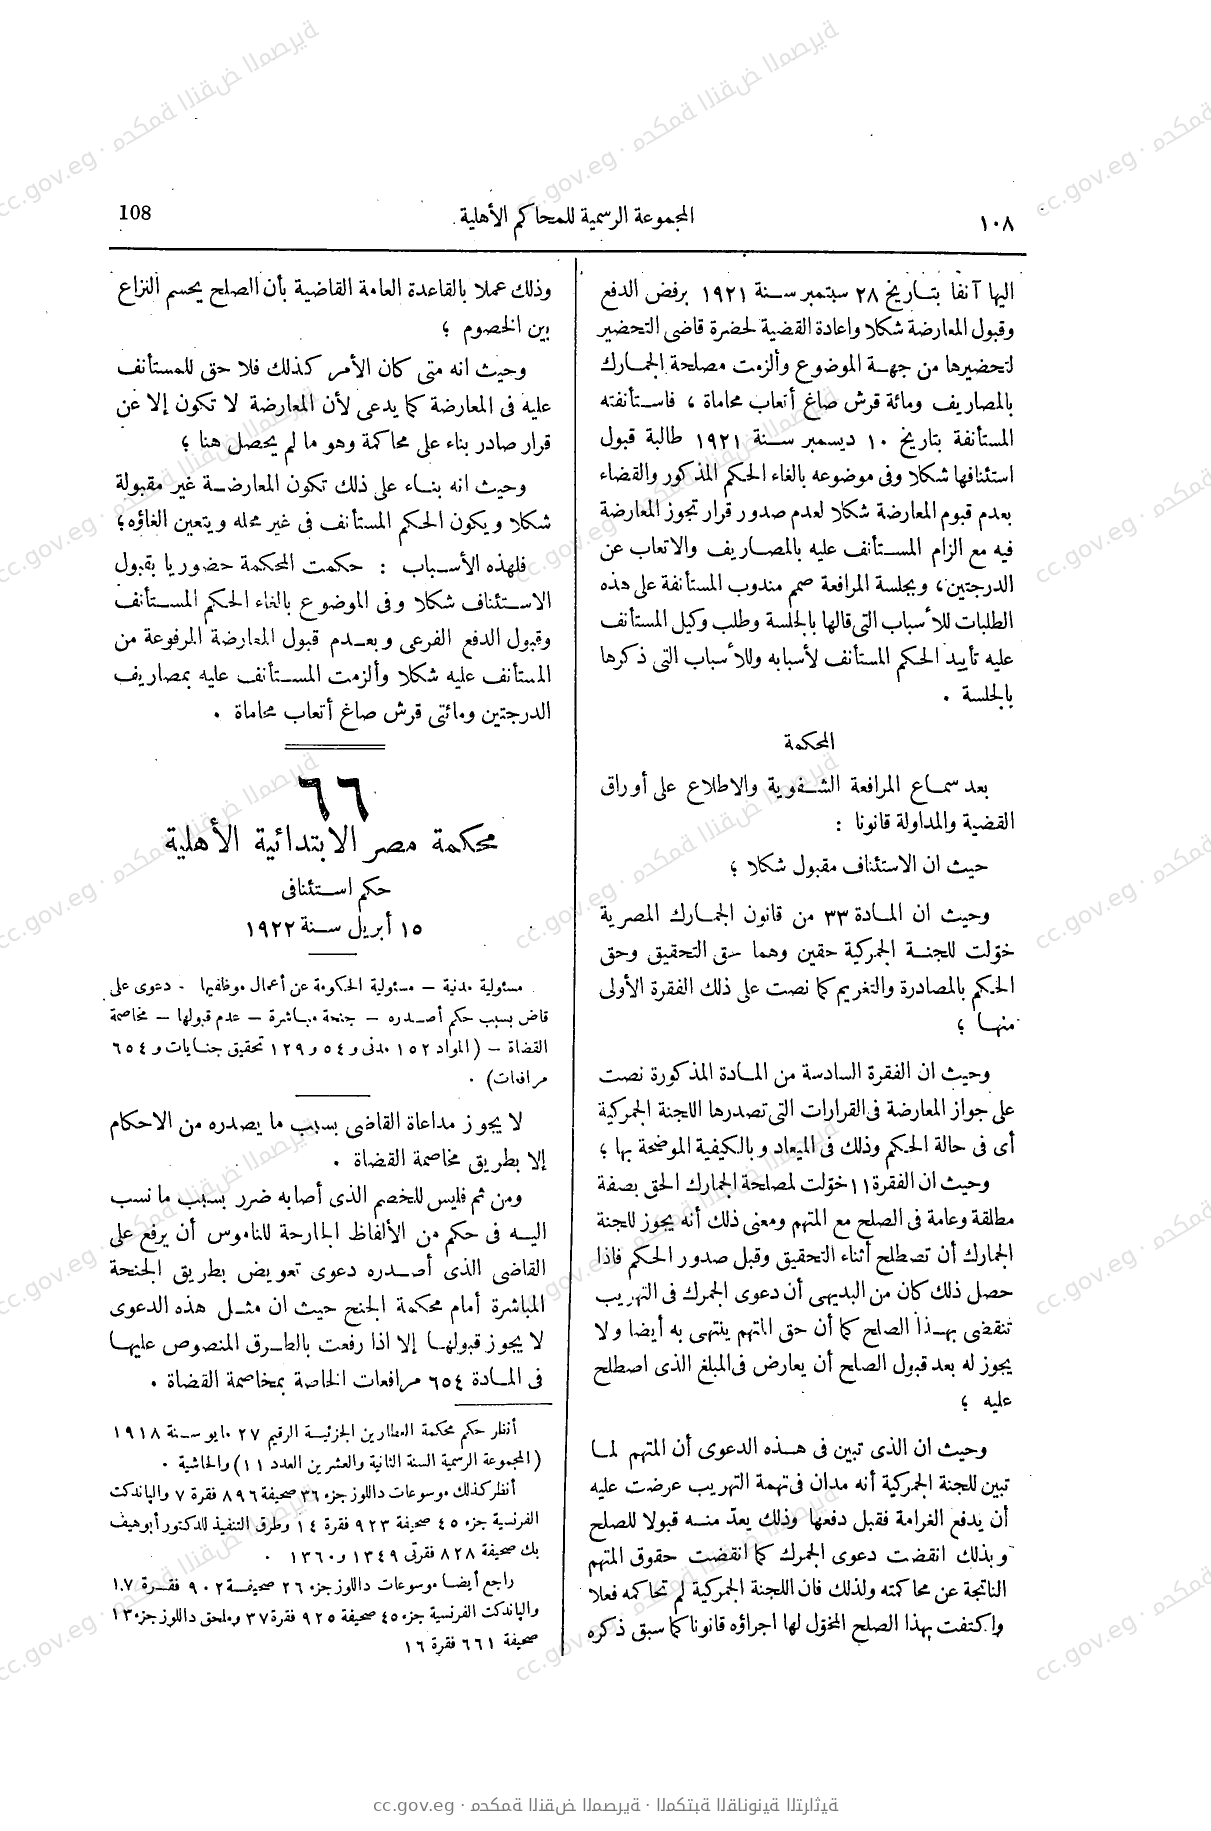 ١٠٨
المجموعة الرسمية للمحاكم الأهلية
108
اليها آنفا بتاريخ ٢٨ سبتمبر سنة ١٩٢١ برفض الدفع
وقبول المعارضة شكلا واعادة القضية لحضرة قاضى التحضير
لتحضيرها من جهة الموضوع وألزمت مصلحة الجمارك
بالمصاريف ومائة قرش صاغ أتعاب محاماة ، فاستأنفته
المستأنفة بتاريخ ١٠ ديسمبر سنة ١٩٢١ طالبة قبول
استئنافها شكلا وفى موضوعه بالغاء الحكم المذكور والقضاء
بعدم قبوم المعارضة شكلا لعدم صدور قرار تجوز المعارضة
فيه مع الزام المستأنف عليه بالمصاريف والاتعاب عن
الدرجتين، وبجلسة المرافعة صمم مندوب المستأنفة على هذه
الطلبات للأسباب التى قالها بالجلسة وطلب وكيل المستأنف
عليه تأييد الحكم المستأنف لأسبابه وللأسباب التى ذكرها
بالجلسة .
المحكمة
بعد سماع المرافعة الشفوية والاطلاع على أوراق
القضية والمداولة قانونا :
حيث ان الاستئناف مقبول شكلا ؛
وحيث ان المادة ٣٣ من قانون الجمارك المصرية
خوّلت للجنة الجمركية حقين وهما حق التحقيق وحق
الحكم بالمصادرة والتغريم كما نصت على ذلك الفقرة الأولى
منها ؛
وحيث ان الفقرة السادسة من المادة المذكورة نصت
على جواز المعارضة فى القرارات التى تصدرها اللجنة الجمركية
أى فى حالة الحكم وذلك فى الميعاد وبالكيفية الموضحة بها ؛
وحيث ان الفقرة ١١ خوّلت لمصلحة الجمارك الحق بصفة
مطلقة وعامة فى الصلح مع المتهم ومعنى ذلك أنه يجوز للجنة
الجمارك أن تصطلح أثناء التحقيق وقبل صدور الحكم فاذا
حصل ذلك كان من البديهى أن دعوى الجمرك فى التهريب
تنقضى بهذا الصلح كما أن حق المتهم ينتهى به أيضا ولا
يجوز له بعد قبول الصلح أن يعارض فى المبلغ الذى اصطلح
عليه ؛
وحيث ان الذى تبين فى هذه الدعوى أن المتهم لما
تبين للجنة الجمركية أنه مدان فى تهمة التهريب عرضت عليه
أن يدفع الغرامة فقبل دفعها وذلك يعدّ منه قبولا للصلح
وبذلك انقضت دعوى الجمرك كما انقضت حقوق المتهم
الناتجة عن محاكمته ولذلك فان اللجنة الجمركية لم تحاكمه فعلا
واكتفت بهذا الصلح المخوّل لها اجراؤه قانونا كما سبق ذكره
وذلك عملا بالقاعدة العامة القاضية بأن الصلح يحسم النزاع
بين الخصوم ؛
وحيث انه متى كان الأمر كذلك فلا حق للمستأنف
عليه فى المعارضة كما يدعى لأن المعارضة لا تكون إلا عن
قرار صادر بناء على محاكمة وهو ما لم يحصل هنا ؛
وحيث انه بناء على ذلك تكون المعارضة غير مقبولة
شكلا ويكون الحكم المستأنف فى غير محله ويتعين الغاؤه؛
فلهذه الأسباب : حكمت المحكمة حضوريا بقبول
الاستئناف شكلا وفى الموضوع بالغاء الحكم المستأنف
وقبول الدفع الفرعى وبعدم قبول المعارضة المرفوعة من
المستأنف عليه شكلا وألزمت المستأنف عليه بمصاريف
الدرجتين ومائتى قرش صاغ أتعاب محاماة .
٦٦
محكمة مصر الابتدائية الأهلية
حكم استئنافى
١٥ أبريل سنة ١٩٢٢
مسئولية مدنية – مسئولية الحكومة عن أعمال موظفيها - دعوى على
قاض بسبب حكم أصدره – جنحة مباشرة – عدم قبولها – مخاصمة
القضاة – (المواد ١٥٢ مدنى و ٥٤ و ١٢٩ تحقيق جنايات و ٦٥٤
مرافعات) .
لا يجوز مداعاة القاضى بسبب ما يصدره من الاحكام
إلا بطريق مخاصمة القضاة .
ومن ثم فليس للخصم الذى أصابه ضرر بسبب ما نسب
اليه فى حكم من الألفاظ الجارحة للناموس أن يرفع على
القاضى الذى أصدره دعوى تعويض بطريق الجنحة
المباشرة أمام محكمة الجنح حيث ان مثل هذه الدعوى
لا يجوز قبولها إلا اذا رفعت بالطرق المنصوص عليها
فى المادة ٦٥٤ مرافعات الخاصة بمخاصمة القضاة .
أنظر حكم محكمة العطارين الجزئية الرقيم ٢٧ مايو سنة ١٩١٨
(المجموعة الرسمية السنة الثانية والعشرين العدد ١١) والحاشية .
أنظر كذلك موسوعات داللوز جزء ٣٦ صحيفة ٨٩٦ فقرة ٧ والباندكت
الفرنسية جزء ٤٥ صحيفة ٩٢٣ فقرة ١٤ وطرق التنفيذ للدكتور أبوهيف
بك صحيفة ٨٢٨ فقرتى ١٣٤٩ و ١٣٦٠ .
راجع أيضا موسوعات داللوز جزء ٢٦ صحيفة ٩٠٢ فقرة ١٠٧
والباندكت الفرنسية جزء ٤٥ صحيفة ٩٢٥ فقرة ٣٧ وملحق داللوز جزء ١٣
صحيفة ٦٦١ فقرة ١٦
cc.gov.eg · محكمة النقض المصرية · المكتبة القانونية التراثية